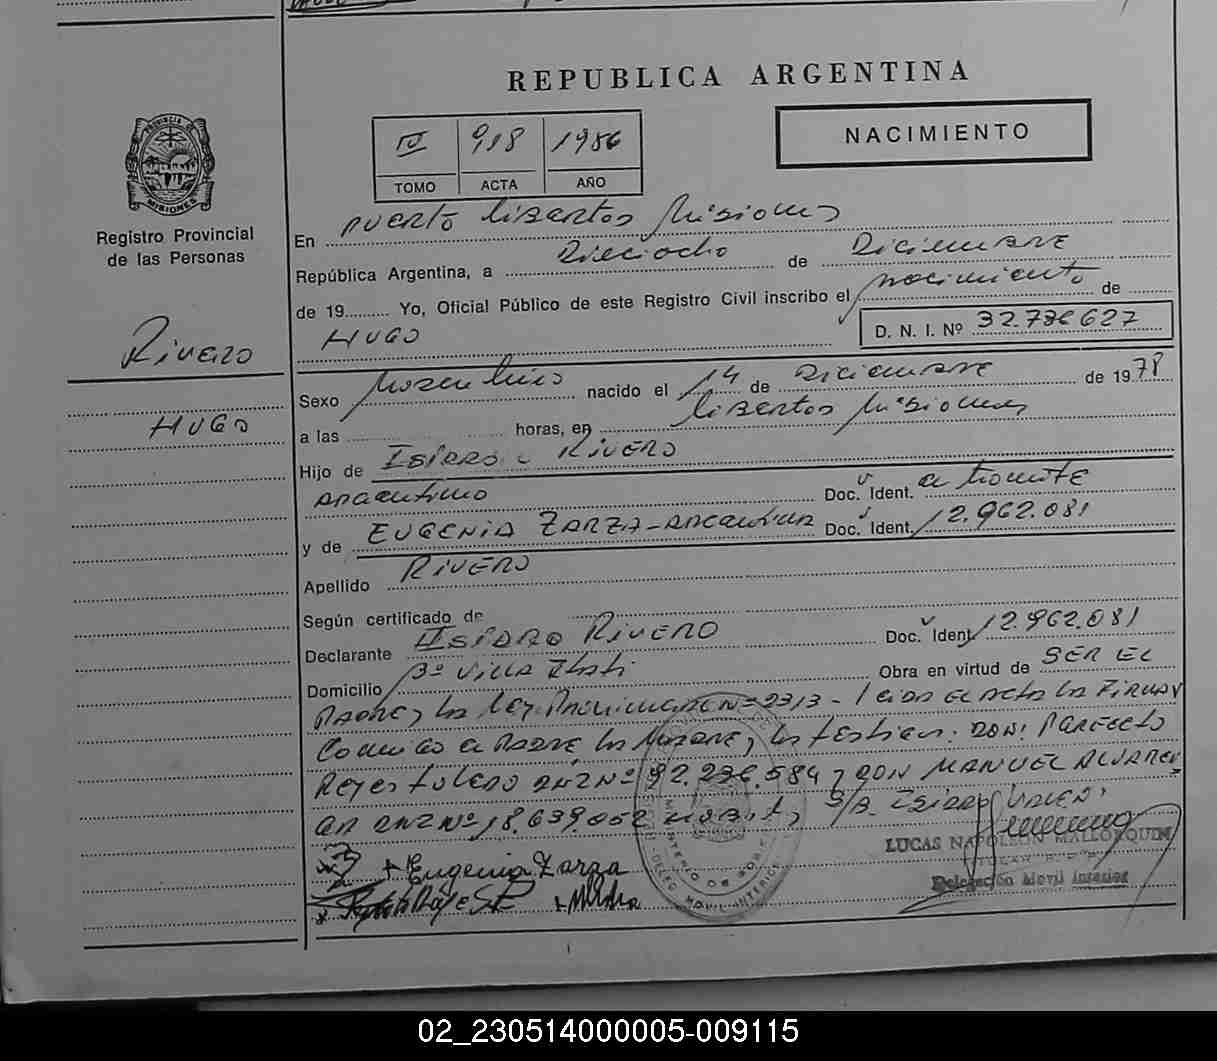 REPUBLICA ARGENTINA
PROVINCIA DE
MISIONES
Registro Provincial
de las Personas
IV 918 1986
TOMO ACTA AÑO
NACIMIENTO
En Puerto Libertad Misiones
República Argentina, a Dieciocho de Diciembre
de 19 Yo, Oficial Público de este Registro Civil inscribo el nacimiento de
HUGO
D. N. I. Nº 32.736627
Rivero
HUGO
Sexo Masculino nacido el 14 de Diciembre de 1978
a las horas, en Libertad Misiones
Hijo de Isidro RIVERO
Argentino Doc. Ident. en tramite
y de EUGENIA ZARZA-Argentina Doc. Ident. 12.962.081
Apellido RIVERO
Según certificado de
Declarante Isidro RIVERO Doc. Ident 12.962.081
Domicilio Bº Villa Itati Obra en virtud de SER EL
PADRE y la Ley Provincial Nº 2313 - leida el acta la FIRMAN
Conmigo el PADRE, la MADRE, los testigos: DON:
Reyes DNI Nº 92.236.584 y DON MANUEL ALVAREZ
DNI Nº 18.639.052
LUCAS NAPOLEON MALLORQUIN
Delegación Movil Interior
+ Eugenia Zarza
MINISTERIO DE GOBIE
MOVIL INTERIOR
02_230514000005-009115